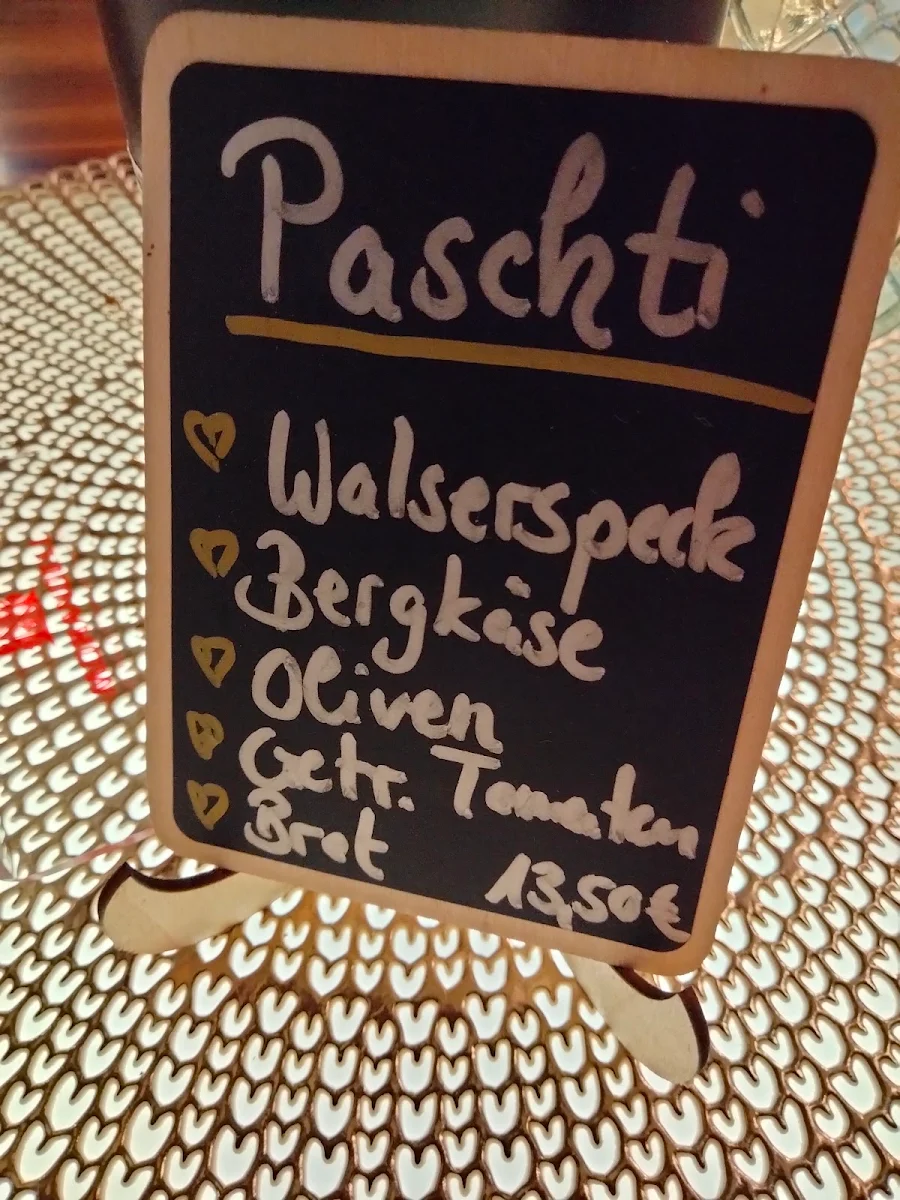 Paschti
Walserspeck
Bergkäse
Oliven
Getr. Tomaten
Brot
13,50€